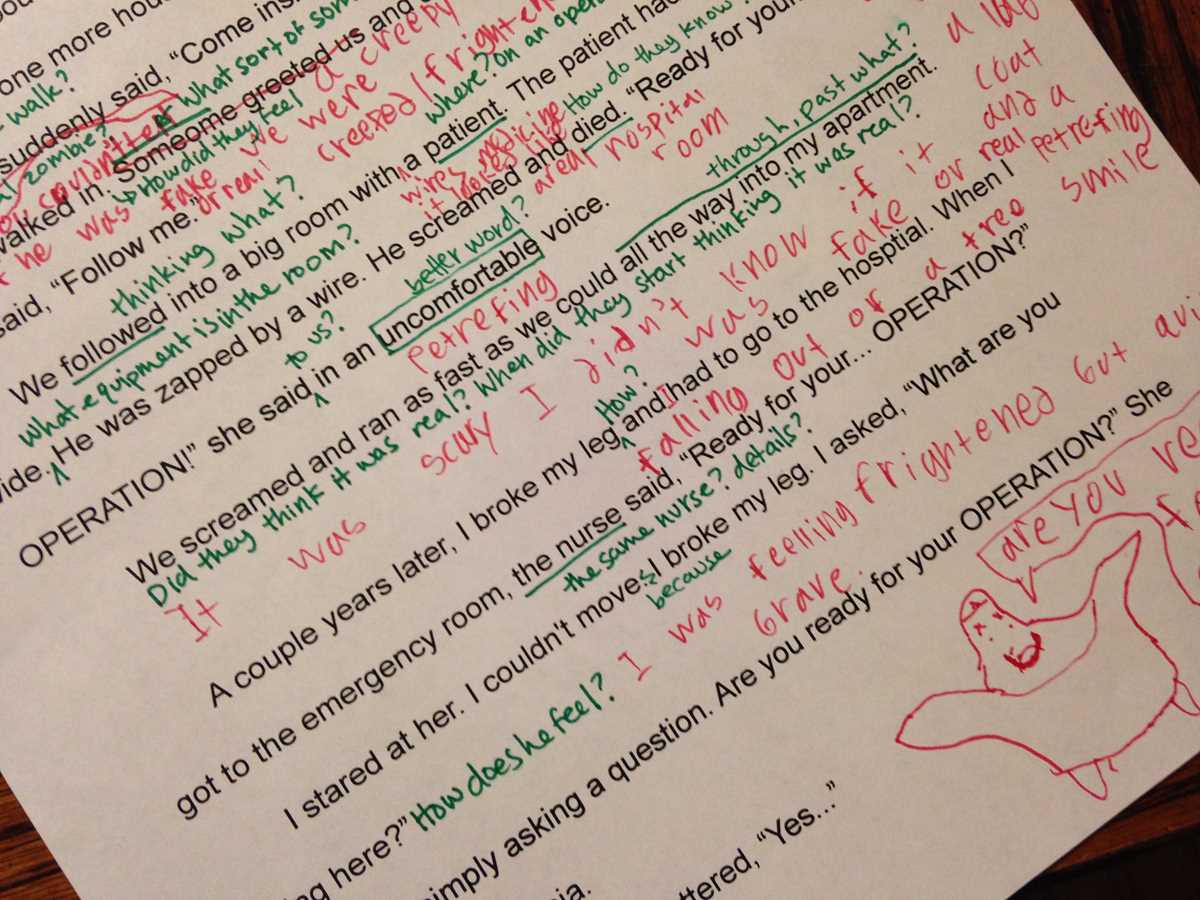 one more hou
walk?
suddenly said, "Come ins
what sort of som
a creepy
zombie?
How did they feel
walked in. Someone greeted us and
we were creeped / frighten
where? on an opera
he was fake or real
said, "Follow me."
thinking what?
We followed into a big room with a patient. The patient had
wires medicine
How do they know?
it looked like a real hospital room
what equipment is in the room?
vide. He was zapped by a wire. He screamed and died. "Ready for your
to us?
better word?
OPERATION!" she said in an uncomfortable voice.
petrefing
through, past what?
We screamed and ran as fast as we could all the way into my apartment.
Did they think it was real? When did they start thinking it was real?
It was scary I didn't know if it was fake or real
a lab coat and a petrefing smile
How?
A couple years later, I broke my leg and I had to go to the hosptial. When I
falling out of a tree
got to the emergency room, the nurse said, "Ready for your... OPERATION?"
the same nurse? details?
I stared at her. I couldn't move I broke my leg. I asked, "What are you
because
ing here?" How does he feel? I was feelling frightened but
brave.
simply asking a question. Are you ready for your OPERATION?" She
are you re
ia.
ttered, "Yes..."